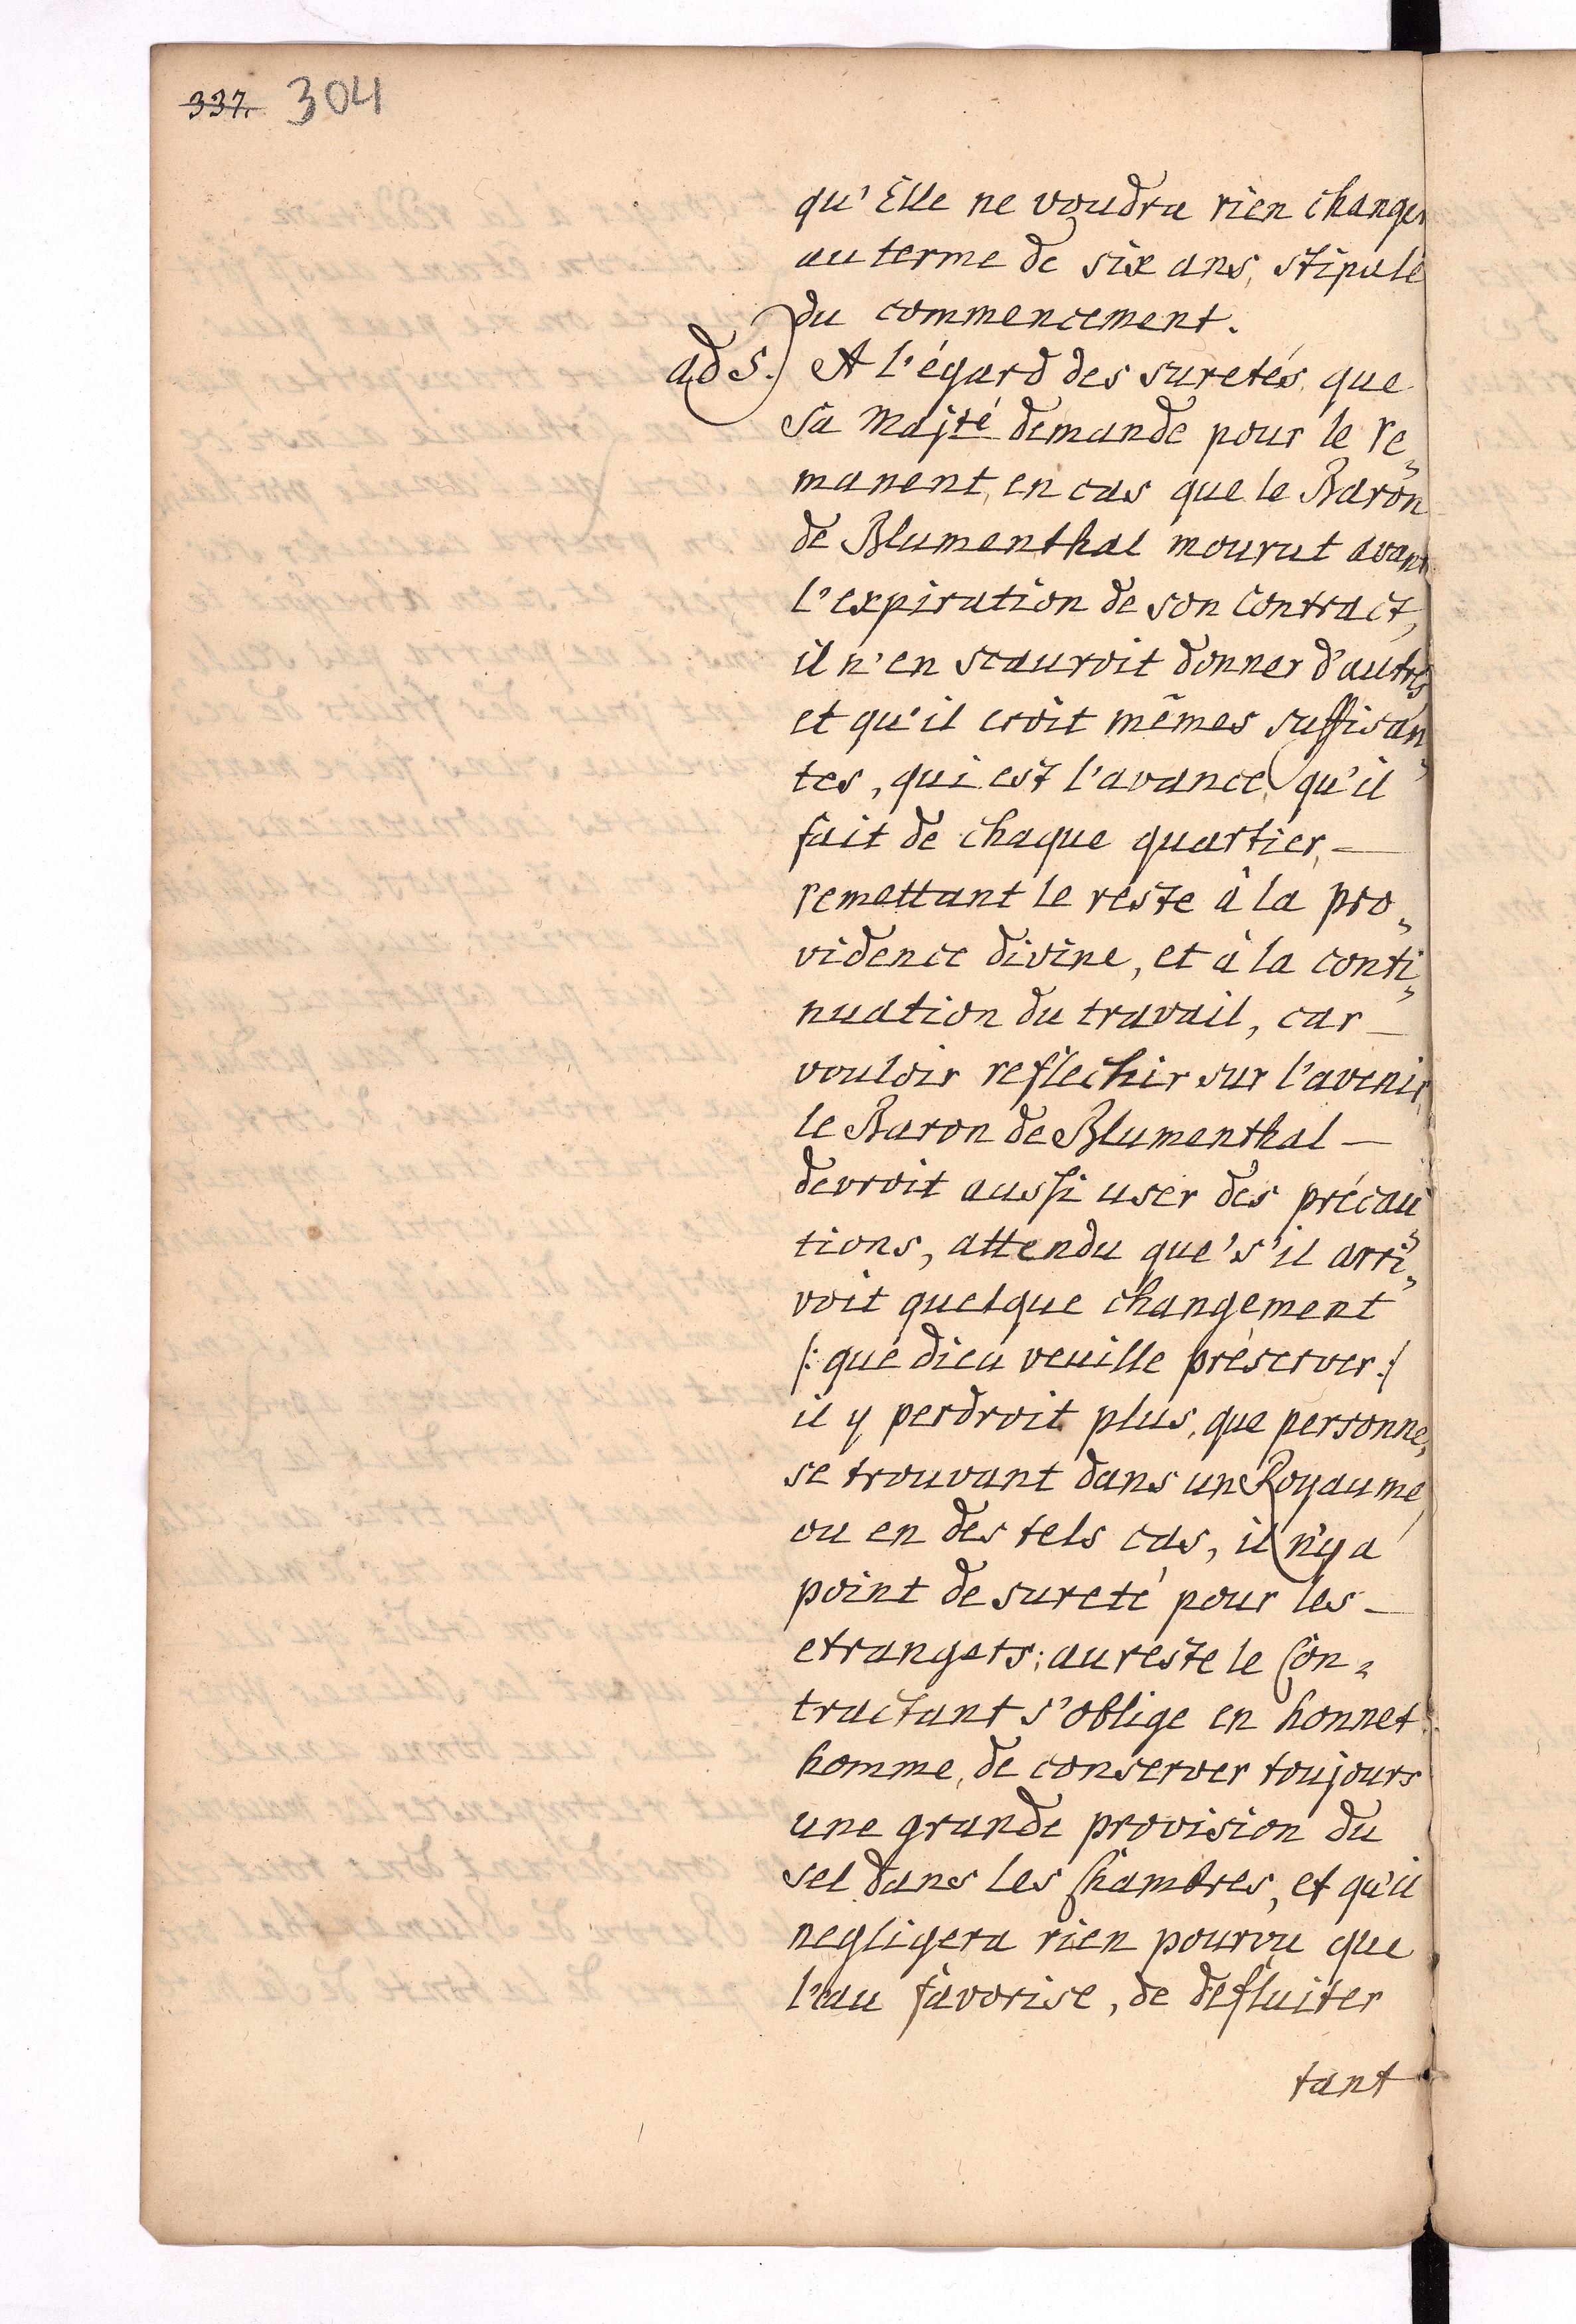 337. 304
qu'Elle ne voudra rien changer
au terme de six ans, stipulé
du commencement.
ad 5.) A l'égard des suretés que
Sa Majté demande pour le re„
manent, en cas que le Baron
de Blumenthal mourut avant
l'expiration de son contract,
il n'en scauroit donner d'autres
et qu'il croit mêmes suffisan„
tes, qui est l'avance, qu'il
fait de chaque quartier, —
remettant le reste à la pro„
vidence divine, et à la conti„
nuation du travail, car —
vouloir reflechir sur l'avenir,
le Baron de Blumenthal —
devroit aussi user des précau„
tions, attendu que's'il arri„
voit quelque changement
/: que dieu veuille préserver :/
il y perdroit plus, que personne,
se trouvant dans un Royaume,
ou en des tels cas, il n'y a
point de sureté pour les —
etrangers; au reste le Con„
tractant s'oblige en honnet
homme, de conserver toujours
une grande provision du
sel dans les Chambres, et qu'il
negligera rien pourvu que
l'eau favorise, de defluiter
tant